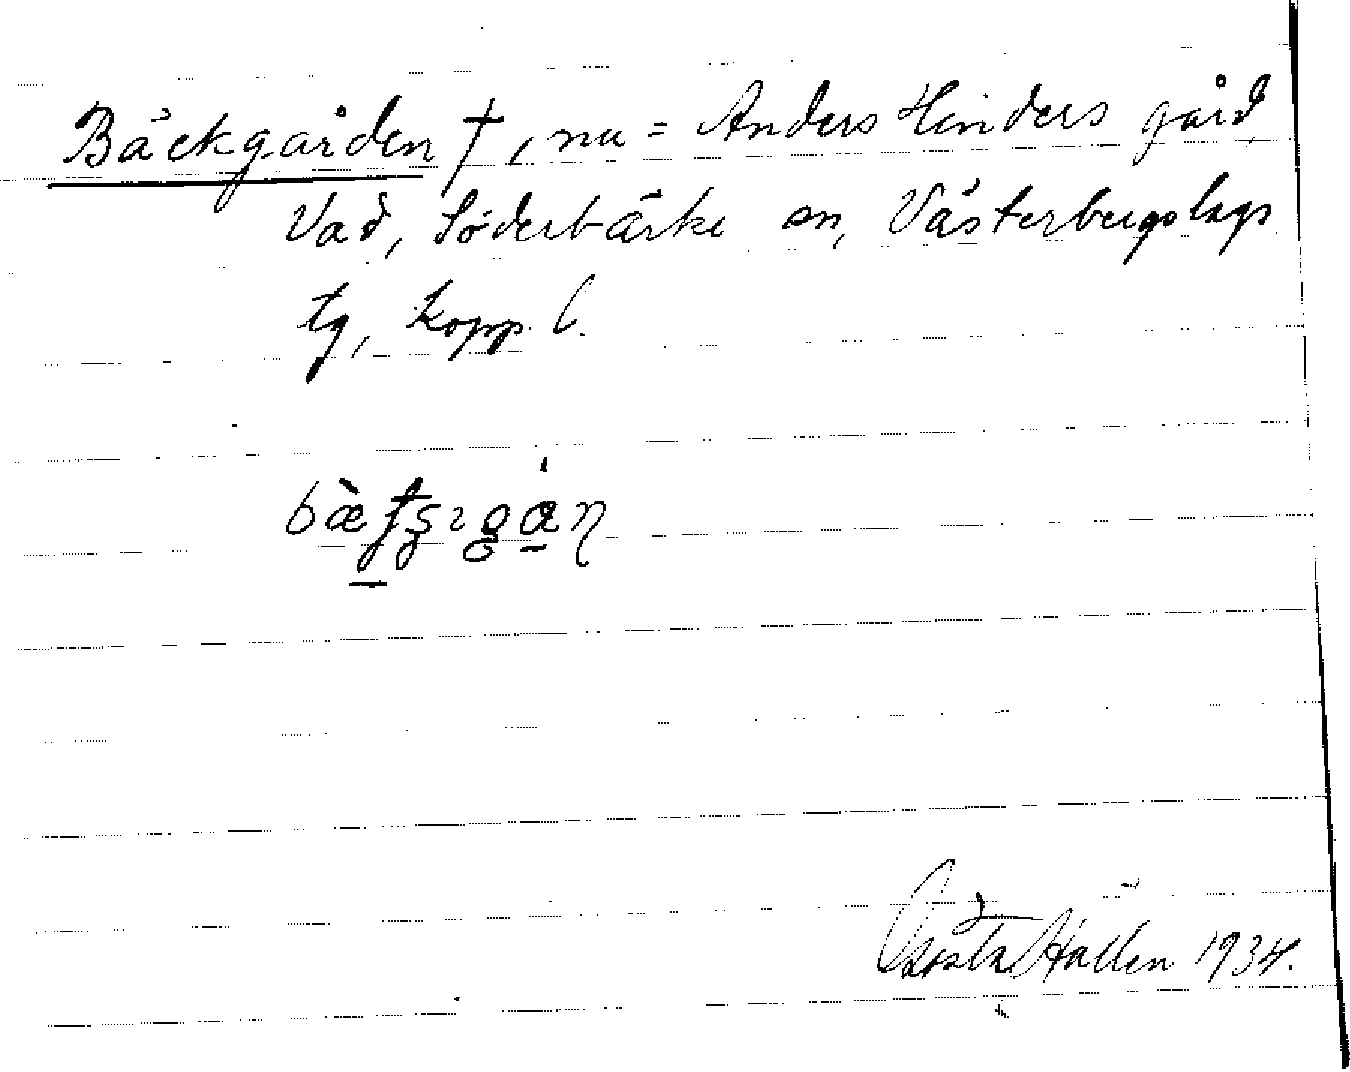 Bäckgården †, nu = Anders Hinders gård
Vad, Söderbärke sn, Västerbergslags
tg, Kopp. l.
Gösta Hallen 1934.